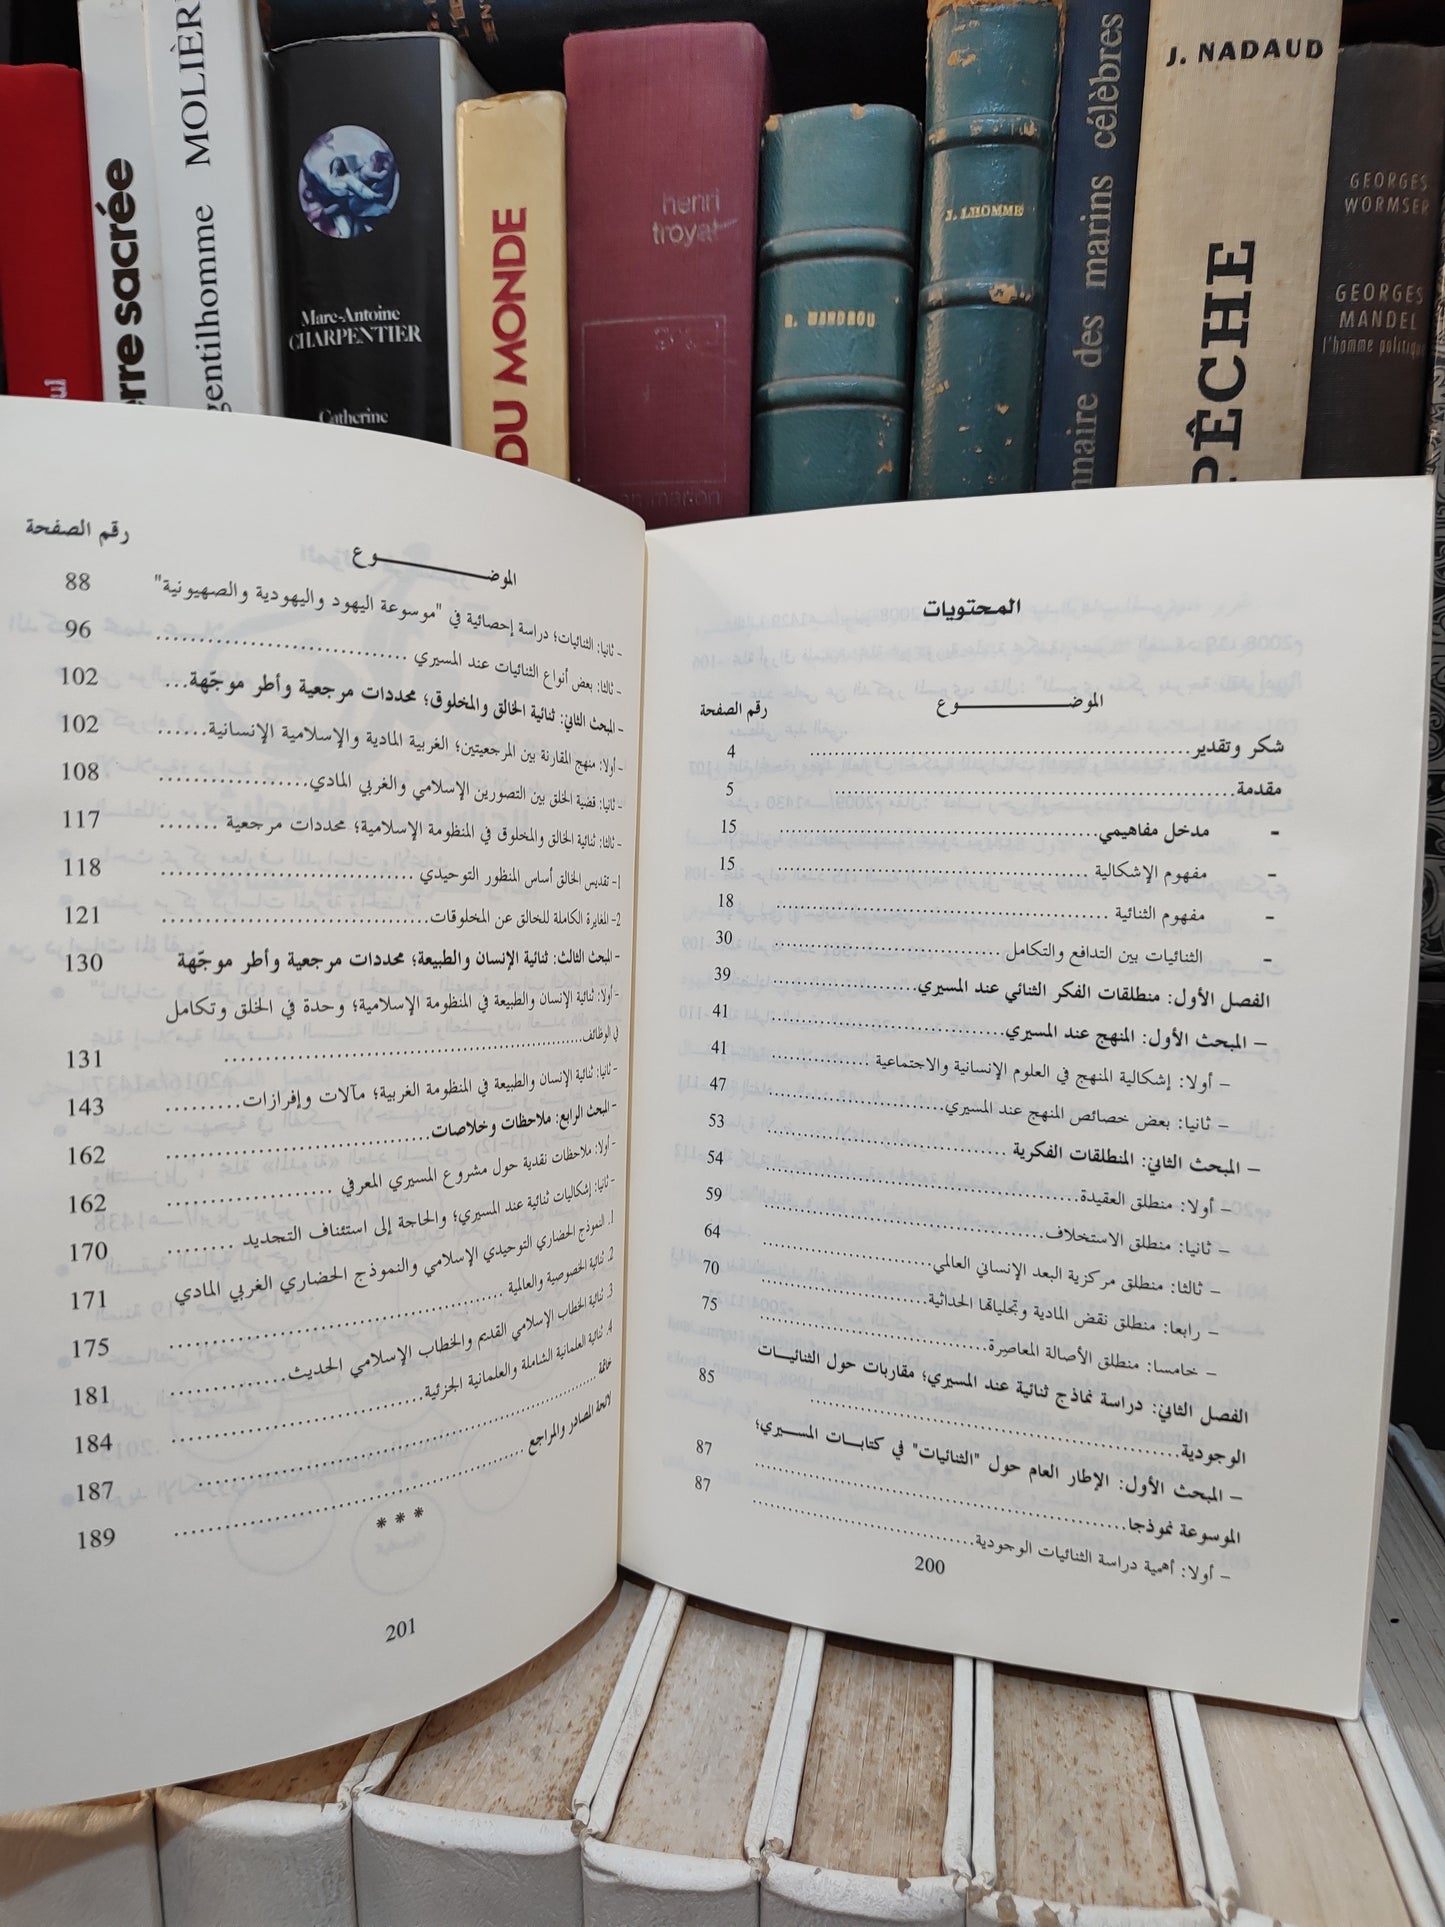 MOLIÈR
gentilhomme
erre sacrée
Marc-Antoine
CHARPENTIER
Catherine
DU MONDE
henri
troyat
R. MANDROU
J. LHOMME
nnaire des marins célèbres
J. NADAUD
PÊCHE
GEORGES
WORMSER
GEORGES
MANDEL
l'homme politique
المحتويات
الموضـــــــــوع رقم الصفحة
شكر وتقدير 4
مقدمة 5
- مدخل مفاهيمي 15
- مفهوم الإشكالية 15
- مفهوم الثنائية 18
- الثنائيات بين التدافع والتكامل 30
الفصل الأول: منطلقات الفكر الثنائي عند المسيري 39
– المبحث الأول: المنهج عند المسيري 41
– أولا: إشكالية المنهج في العلوم الإنسانية والاجتماعية 41
– ثانيا: بعض خصائص المنهج عند المسيري 47
– المبحث الثاني: المنطلقات الفكرية 53
– أولا: منطلق العقيدة 54
– ثانيا: منطلق الاستخلاف 59
– ثالثا: منطلق مركزية البعد الإنساني العالمي 64
– رابعا: منطلق نقض المادية وتجلياتها الحداثية 70
– خامسا: منطلق الأصالة المعاصرة 75
الفصل الثاني: دراسة نماذج ثنائية عند المسيري؛ مقاربات حول الثنائيـــات
الوجودية 85
– المبحث الأول: الإطار العام حول "الثنائيات" في كتابـــات المســـيري؛
الموسوعة نموذجا 87
– أولا: أهمية دراسة الثنائيات الوجودية 87
200
الموضـــــــــوع رقم الصفحة
– ثانيا: الثنائيات؛ دراسة إحصائية في "موسوعة اليهود واليهودية والصهيونية" 88
– ثالثا: بعض أنواع الثنائيات عند المسيري 96
– المبحث الثاني: ثنائية الخالق والمخلوق؛ محددات مرجعية وأطر موجّهة 102
– أولا: منهج المقارنة بين المرجعيتين؛ الغربية المادية والإسلامية الإنسانية 102
– ثانيا: قضية الخلق بين التصورين الإسلامي والغربي المادي 108
– ثالثا: ثنائية الخالق والمخلوق في المنظومة الإسلامية؛ محددات مرجعية 117
1– تقديس الخالق أساس المنظور التوحيدي 118
2– المغايرة الكاملة للخالق عن المخلوقات 121
– المبحث الثالث: ثنائية الإنسان والطبيعة؛ محددات مرجعية وأطر موجّهة 130
– أولا: ثنائية الإنسان والطبيعة في المنظومة الإسلامية؛ وحدة في الخلق وتكامل
في الوظائف 131
– ثانيا: ثنائية الإنسان والطبيعة في المنظومة الغربية؛ مآلات وإفرازات 143
– المبحث الرابع: ملاحظات وخلاصات 162
– أولا: ملاحظات نقدية حول مشروع المسيري المعرفي 162
– ثانيا: إشكاليات ثنائية عند المسيري؛ والحاجة إلى استئناف التجديد 170
1. النموذج الحضاري التوحيدي الإسلامي والنموذج الحضاري الغربي المادي 171
2. ثنائية الخصوصية والعالمية 175
3. ثنائية الخطاب الإسلامي القديم والخطاب الإسلامي الحديث 181
4. ثنائية العلمانية الشاملة والعلمانية الجزئية 184
خاتمة 187
لائحة المصادر والمراجع 189
* * *
201